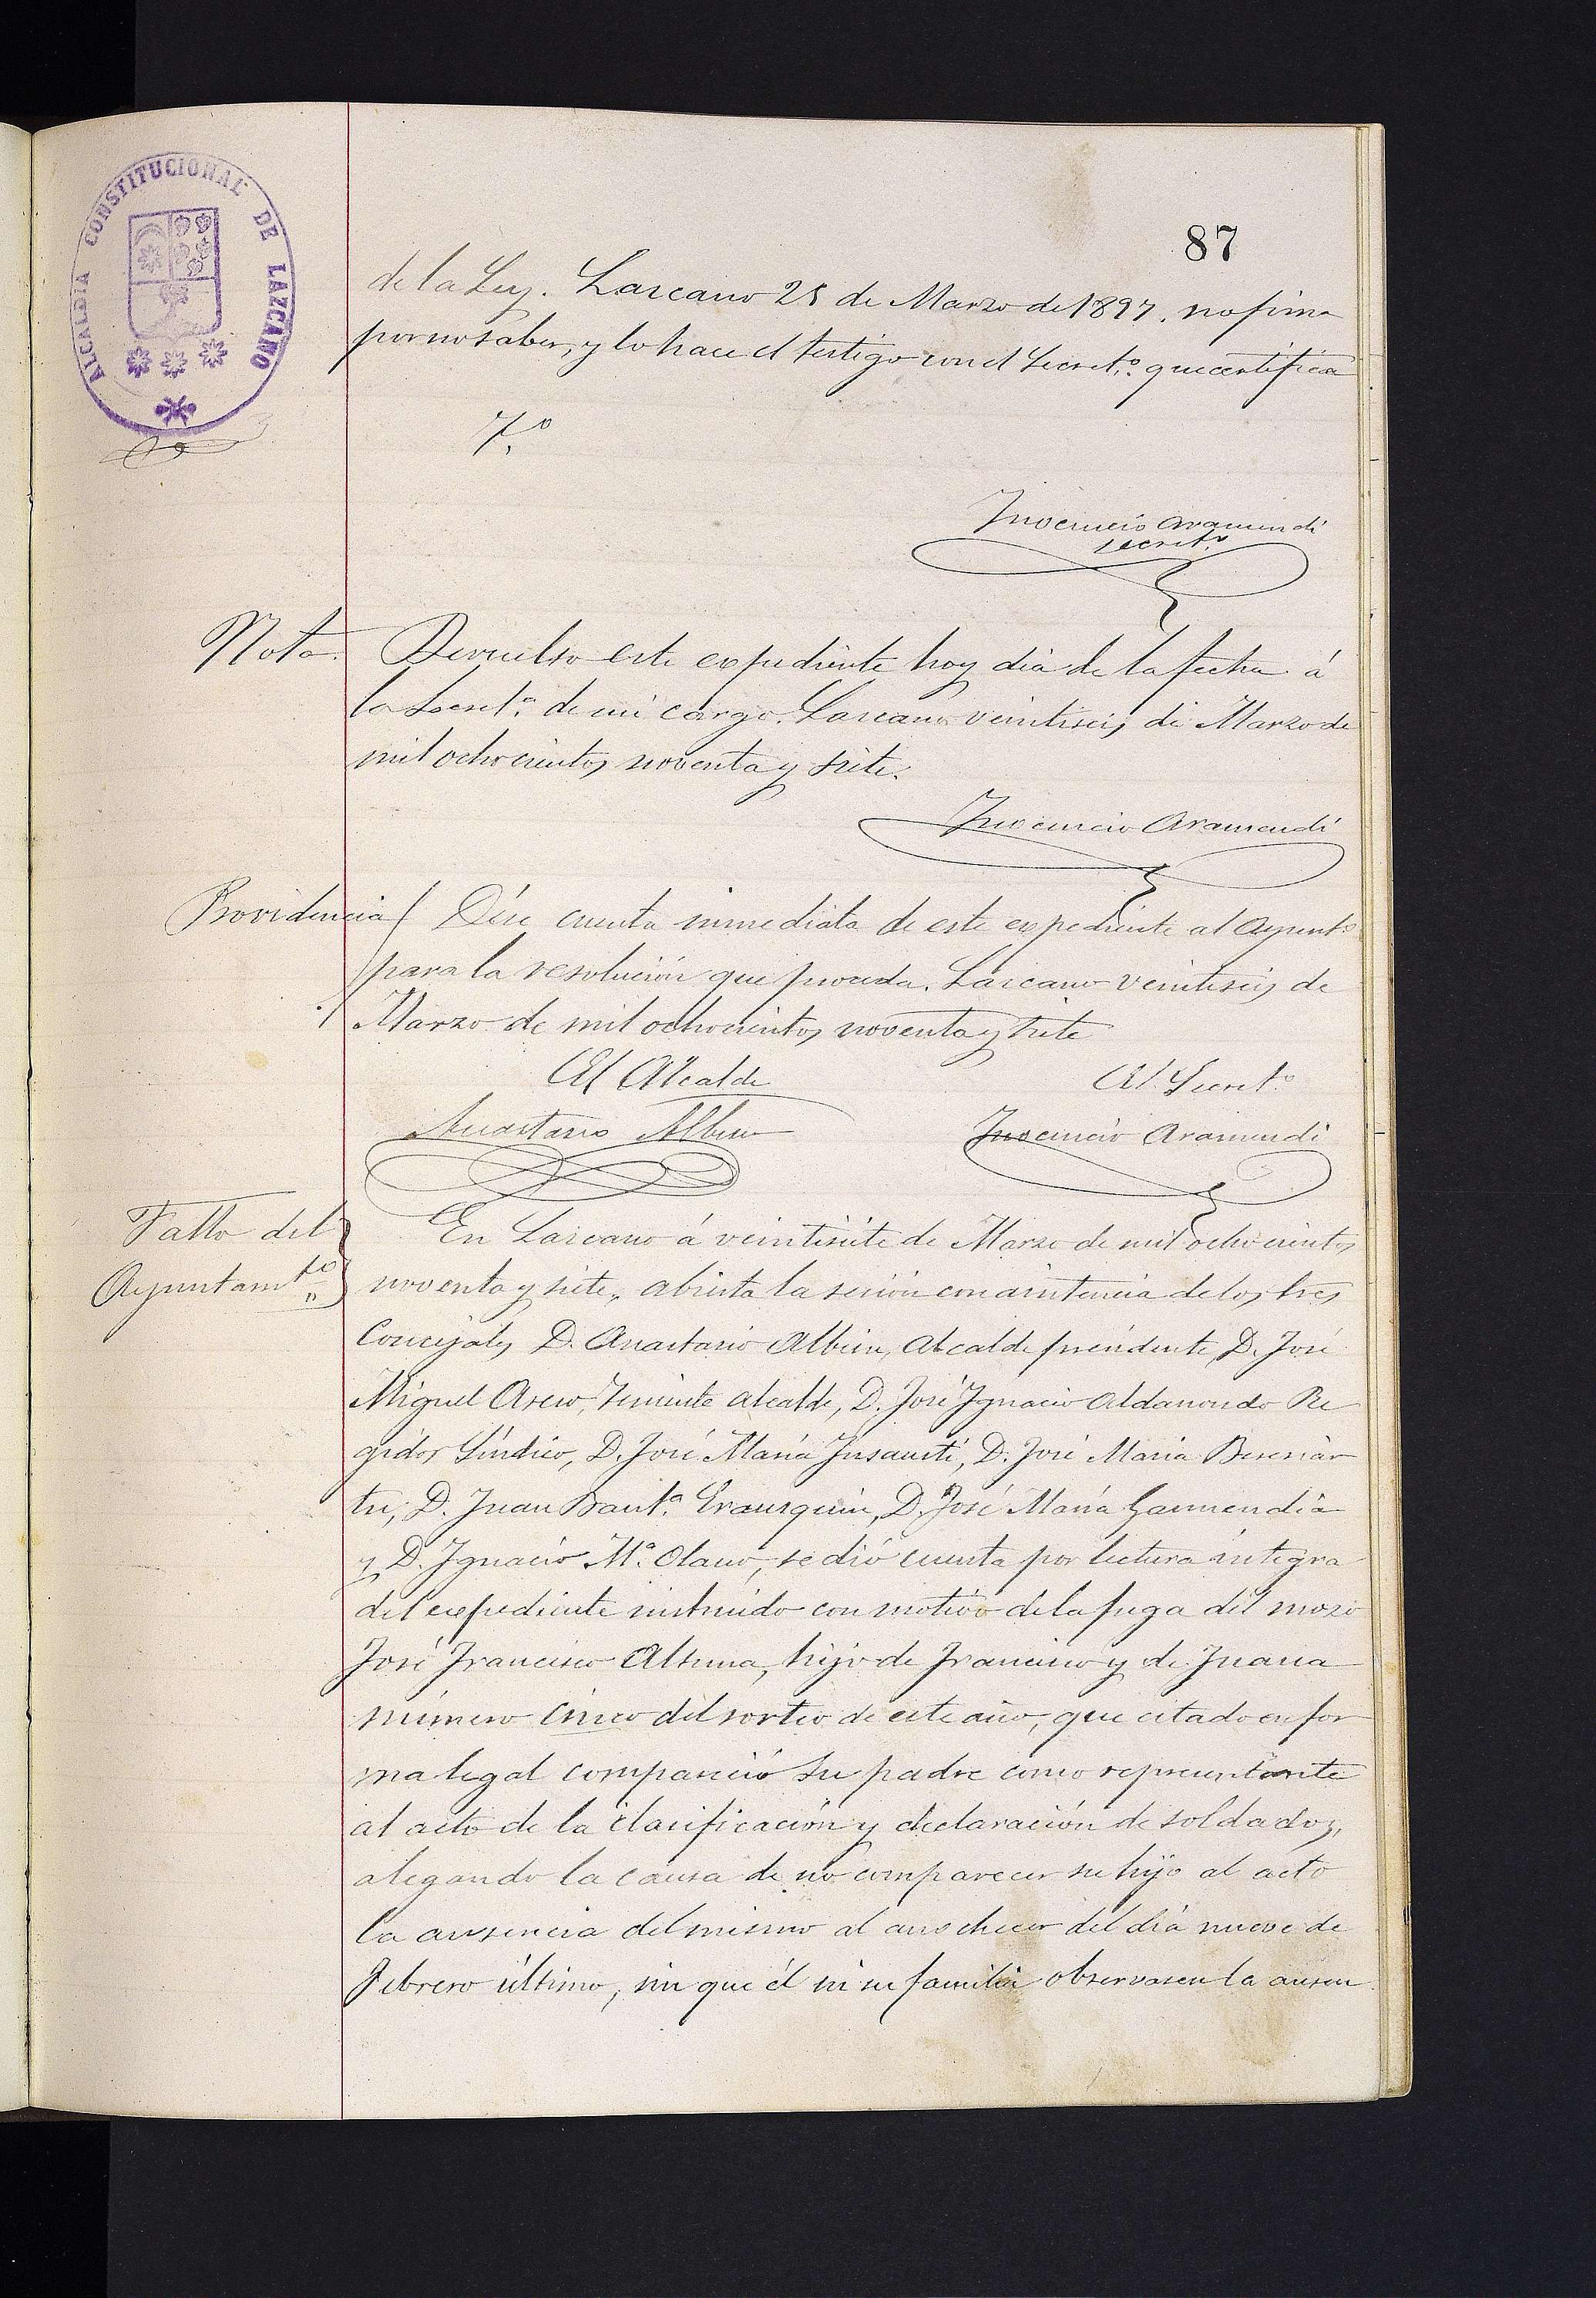 ALCALDIA CONSTITUCIONAL DE LAZCANO
87
de la Ley. Lazcano 25 de Marzo de 1897. no firma
por no saber, y lo hace el testigo con el Secret.º que certifica
T.º
Inocencio Aramendi
secret.º
Nota. Devuelto este expediente hoy dia de la fecha á
la Secret.ª de mi cargo. Lazcano veintiseis de Marzo de
mil ochocientos noventa y siete.
Inocencio Aramendi
Providencia Dése cuenta inmediata de este expediente al Ayunt.º
para la resolución que proceda. Lazcano veintiseis de
Marzo de mil ochocientos noventa y siete
El Alcalde El Secret.º
Anastasio Albisu Inocencio Aramendi
Fallo del Ayuntamto
En Lazcano á veintisiete de Marzo de mil ochocientos
noventa y siete, abierta la sesión con asistencia de los tres
Concejales D. Anastasio Albisu, Alcalde presidente, D. José
Miguel Teniente alcalde, D. José Ignacio Aldanondo Re
gidor Síndico, D. José María Insausti, D. José María
D. Juan Baut.ª Erausquin, D. José María Garmendia
y D. Ignacio M.ª Olano, se dió cuenta por lectura integra
del expediente instruido con motivo de la fuga del mozo
José Francisco Altuna, hijo de Francisco y de Juana
número cinco del sorteo de este año, que citado en for
ma legal compareció su padre como representante
al acto de la clasificación y declaración de soldados,
alegando la causa de no comparecer su hijo al acto
la ausencia del mismo al anochecer del día nueve de
Febrero último, sin que él ni su familia observasen la ausen